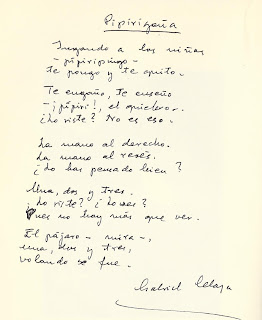 Pipirigaña
Jugando a los niños
- pipiripingo -
te pongo y te quito.
Te engaño, te enseño
- ¡pipirí!, el
¿Lo viste? No es eso.
La mano al derecho.
La mano al revés.
¿Lo has pensado bien?
Una, dos y tres.
¿Lo viste? ¿Lo ves?
Pues no hay más que ver.
El pájaro - mira -,
una, dos y tres,
volando se fue.
Gabriel Celaya